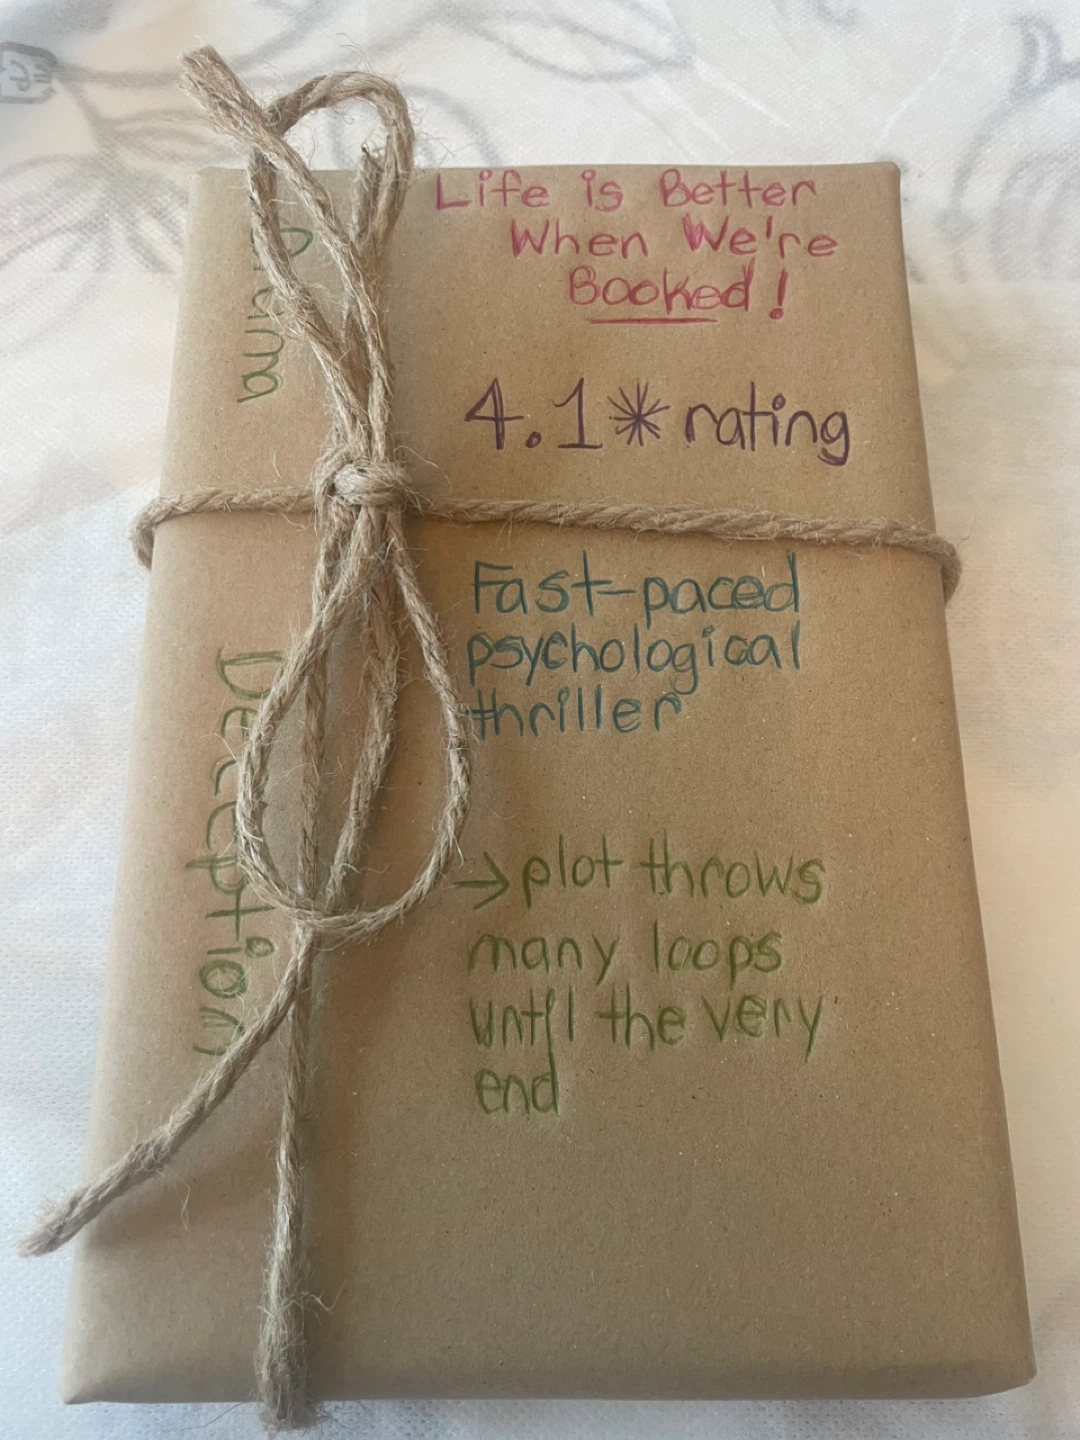 Life is Better
When We're
Booked!
4.1* rating
Fast-paced
psychological
thriller
→ plot throws
many loops
until the very
end
Drama
Deception